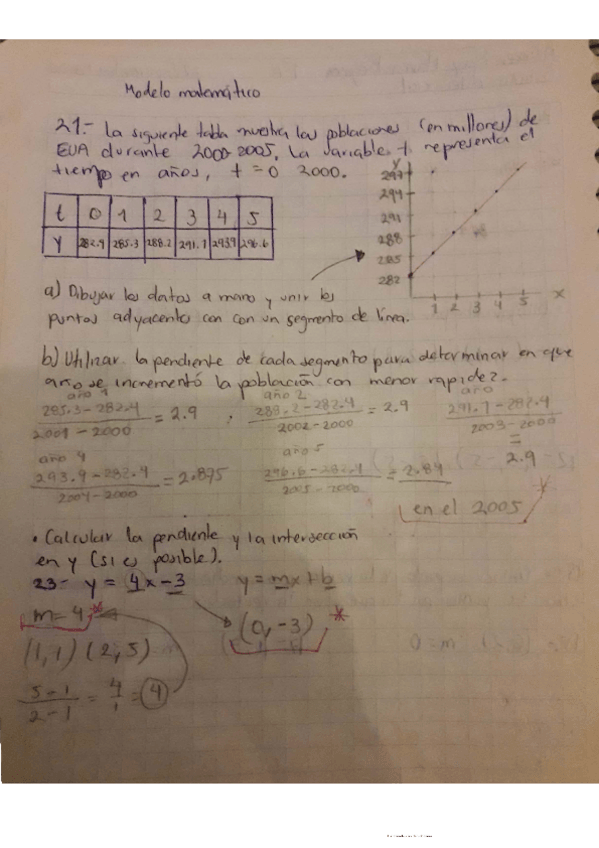 Modelo matemático
21.- La siguiente tabla muestra las poblaciones (en millones) de
EUA durante 2000-2005. La variable t representa el
tiempo en años, t = 0 2000.
t 0 1 2 3 4 5
y 282.4 285.3 288.2 291.1 293.9 296.6
y
297
294
291
288
285
282
1 2 3 4 5 x
a) Dibujar los datos a mano y unir los
puntos adyacentes con con un segmento de línea.
b) Utilizar la pendiente de cada segmento para determinar en que
año se incrementó la población con menor rapidez.
año 1
285.3-282.4 / 2001-2000 = 2.9
año 2
288.2-282.4 / 2002-2000 = 2.9
año
291.1-282.4 / 2003-2000 = 2.9
año 4
293.9-282.4 / 2004-2000 = 2.875
año 5
296.6-282.4 / 2005-2000 = 2.84
en el 2005
• Calcular la pendiente y la intersección
en y (si es posible).
23- y = 4x-3 y = mx+b
m=4 (0,-3)
(1,1) (2,5)
5-1 / 2-1 = 4/1 = 4